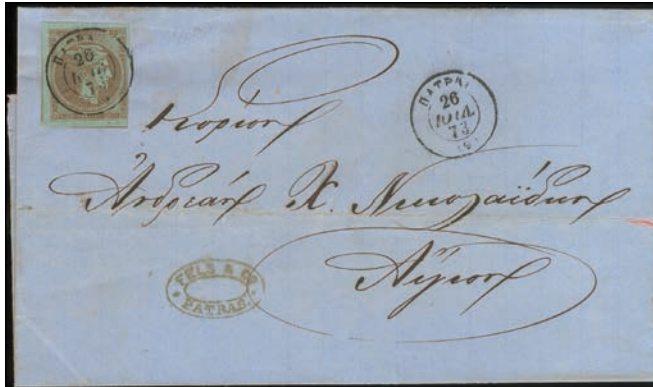 ΠΑΤΡΑΙ
26
ΙΟΥΛ
ΠΑΤΡΑΙ
26
ΙΟΥΛ.
73
Κύριον
Ἀνδρέαν Χ. Νικολαΐδην
Αἴγιον
FELS & Co
PATRAS